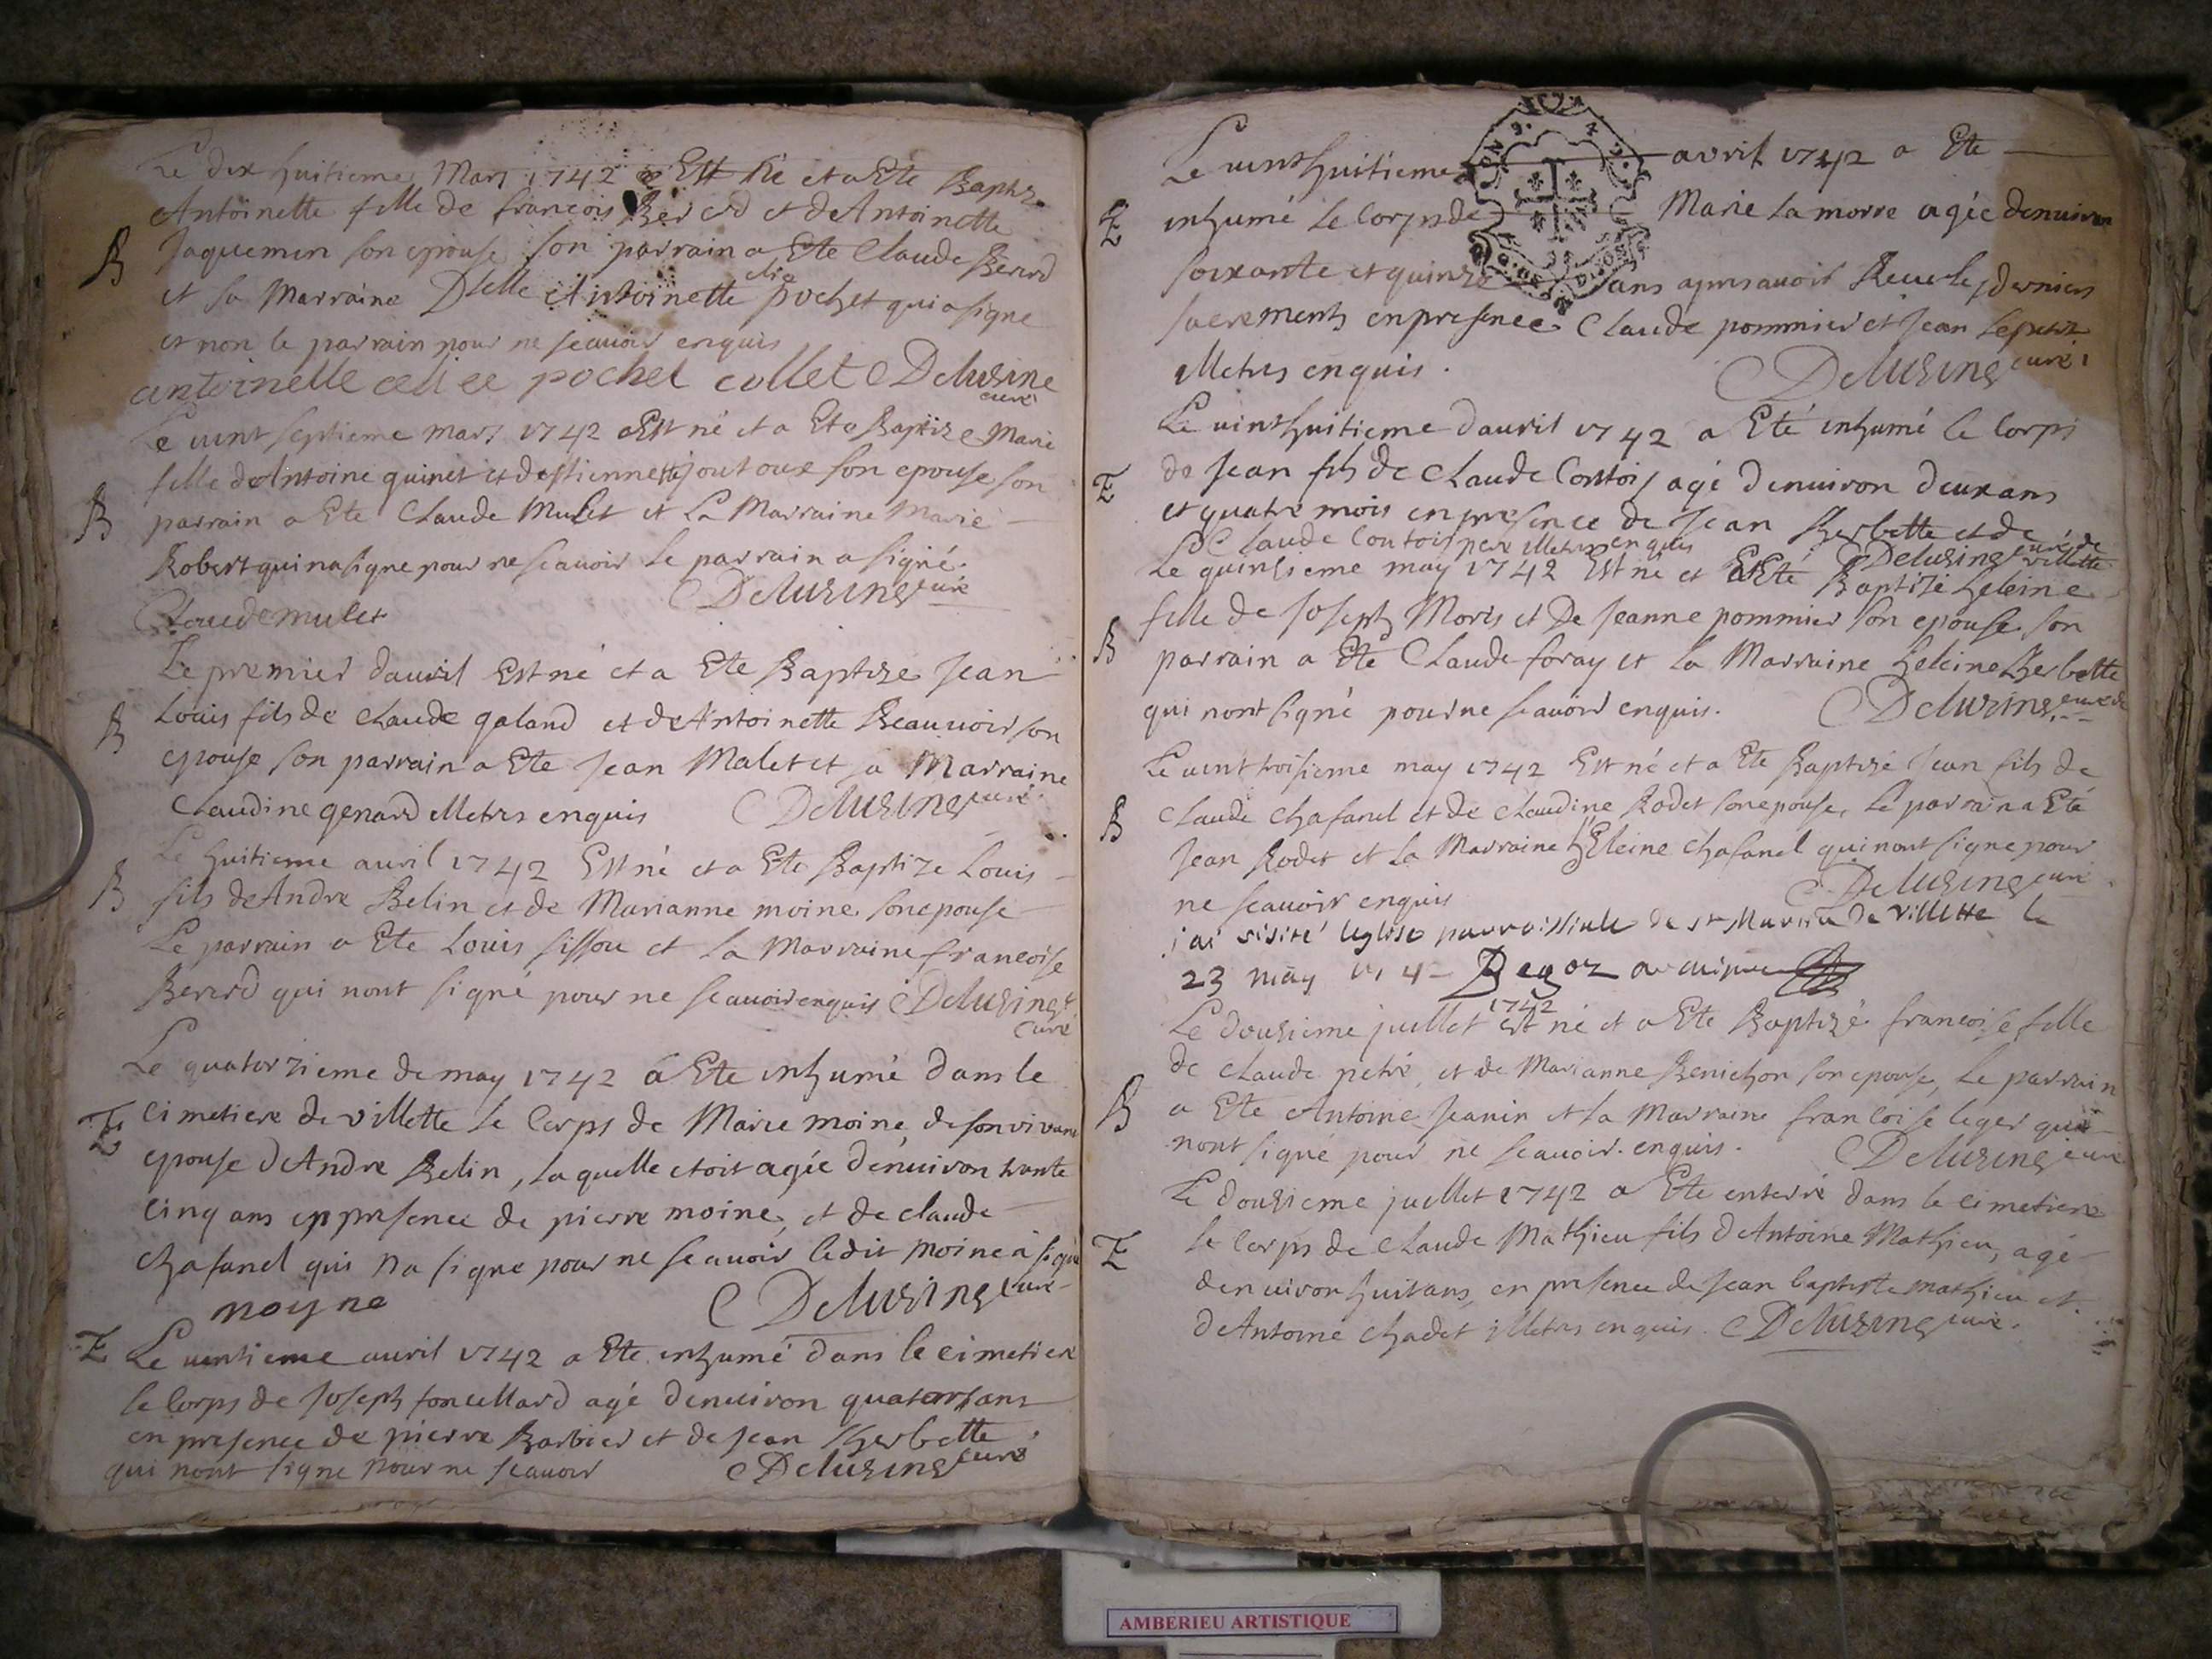 Le dix huitieme Mars 1742 Est né et a Eté Baptize
Antoinette fille de francois Bererd et de Antoinette
B
Jaquemin son epouse son parrain a Ete Claude Bererd
et sa Marraine Dlle Antoinette pochet qui a signe
et non le parrain pour ne scauoir enquis
antoinelle pochet collet Delusine
curé
Le vint septieme mars 1742 Est né et a Ete Baptize Marie
fille de Antoine quinet et destiennette son epouse son
B
parrain a Ete Claude Mulet et La Marraine Marie
Robert qui na signe pour ne scauoir le parrain a signé.
Delusine curé
Claude mulet
Le premier dauril Est né et a Ete Baptize Jean
B
Louis fils de claude galand et de Antoinette Beauuoir son
epouse son parrain a Ete Jean Malet et sa Marraine
Claudine genard illetrés enquis Delusine curé.
Le huitieme auril 1742 Est né et a Ete Baptize Louis
B
fils de Andre Belin et de Marianne moine son epouse
Le parrain a Ete Louis sissou et la Marraine francoise
Bererd qui nont signé pour ne scauoir enquis Delusine
curé
Le quatorzieme de may 1742 a Ete inhumé dans le
E
cimetiere de villette le Corps de Marie moine de son viuant
epouse dAndre Belin, laquelle etoit agée denuiron trante
cinq ans en presence de pierre moine, et de claude
chafanel qui na signe pour ne scauoir ledit moine a signe
moyne Delusine curé
E
Le vintieme auril 1742 a Ete inhumé dans le cimetiere
le Corps de Joseph foncellard agé denuiron quatorze ans
en presence de pierre Barbier et de Jean Herbette
qui nont signe pour ne scauoir Delusine curé
Le vint huitieme avril 1742 a Ete
E
inhumé le Corps de Marie la morre agée denuiron
soixante et quinze ans apres auoir Receu les derniers
sacrements en presence Claude pommier et Jean
illetrés enquis. Delusine curé
Le vint huitieme dauril 1742 a Eté inhumé le Corps
E
de Jean fils de Claude Contois agé denuiron deux ans
et quatre mois en presence de Jean Herbette et de
Claude Contois pere illetrés enquis Delusine curé de
villette
Le quinzieme may 1742 Est né et a Eté Baptisé heleine
fille de Joseph Moris et De Jeanne pommier son epouse son
B
parrain a Ete Claude foray et la Marraine heleine Herbette
qui nont signé pour ne scauoir enquis. Delusine curé de
Le vint troisieme may 1742 Est né et a Ete Baptizé Jean fils de
B
Claude chafanel et de Claudine Rodet son epouse, Le parrain a Eté
Jean Rodet et la Marraine hEleine chafanel qui nont signe pour
ne scauoir enquis Delusine curé
j'ai visité leglise parroissiale de st Martin de villette le
23 may 174
1742
Le douzieme juillet est né et a Ete Baptizé francoise fille
de Claude petré et de Marianne Benichon son epouse, Le parrain
B
a Ete Antoine Jeanin et la Marraine francoise leger qui
nont signé pour ne scauoir enquis. Delusine curé
Le douzieme juillet 1742 a Ete enterré dans le cimetiere
E
le Corps de Claude Mathieu fils dAntoine Mathieu, agé
denuiron huit ans, en presence de Jean baptiste mathieu et
dAntoine chadet illetrés enquis. Delusine curé.
AMBERIEU ARTISTIQUE